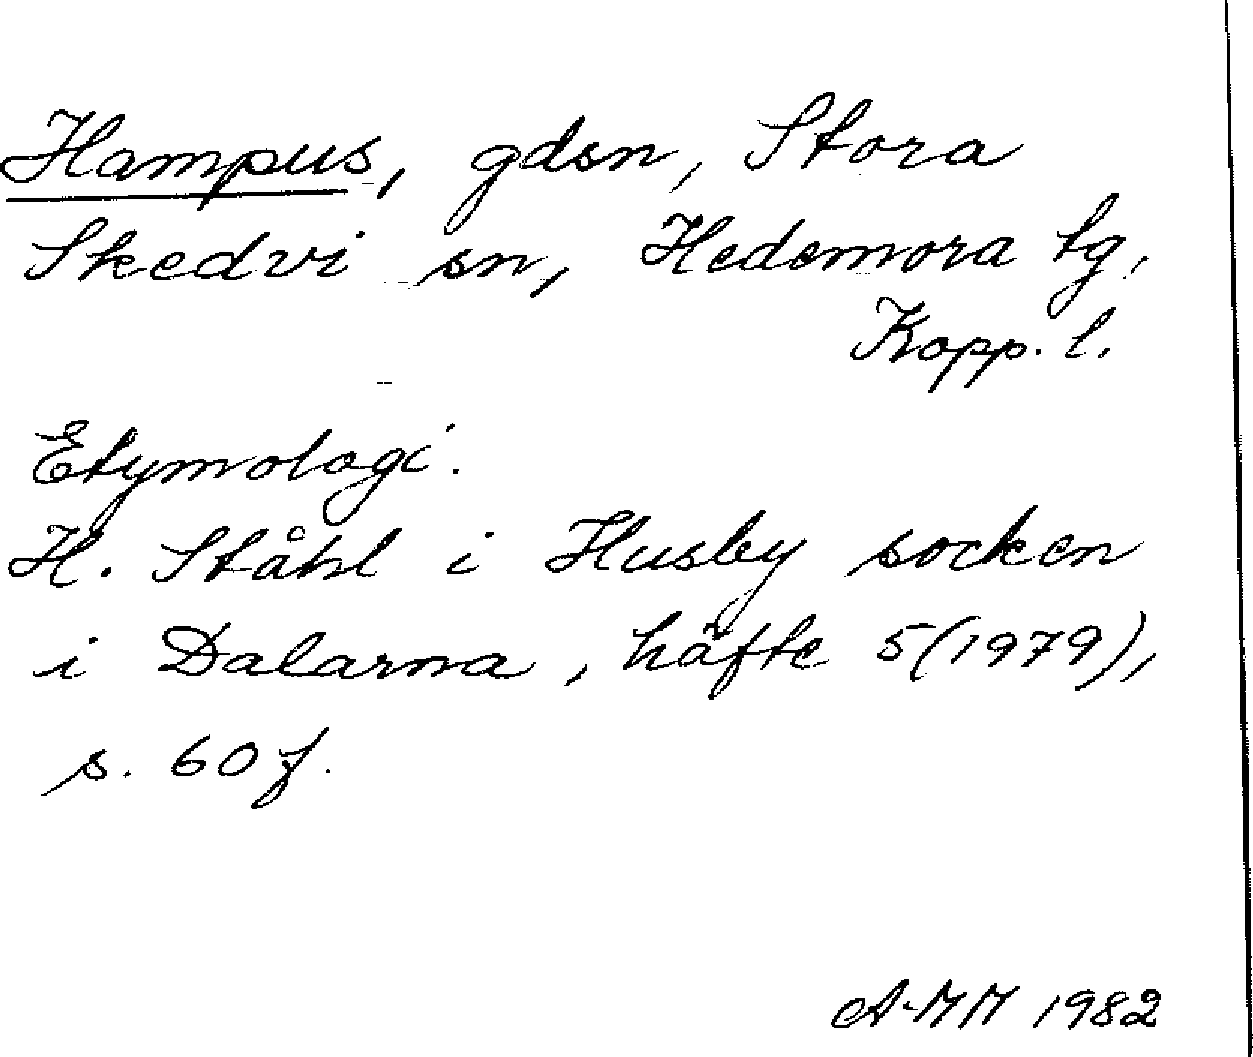 Hampus, gdsn, Stora
Skedvi sn, Hedemora tg,
Kopp. l.
Etymologi.
H. Ståhl i Husby socken
i Dalarna, häfte 5 (1979),
s. 60 f.
A-MM 1982